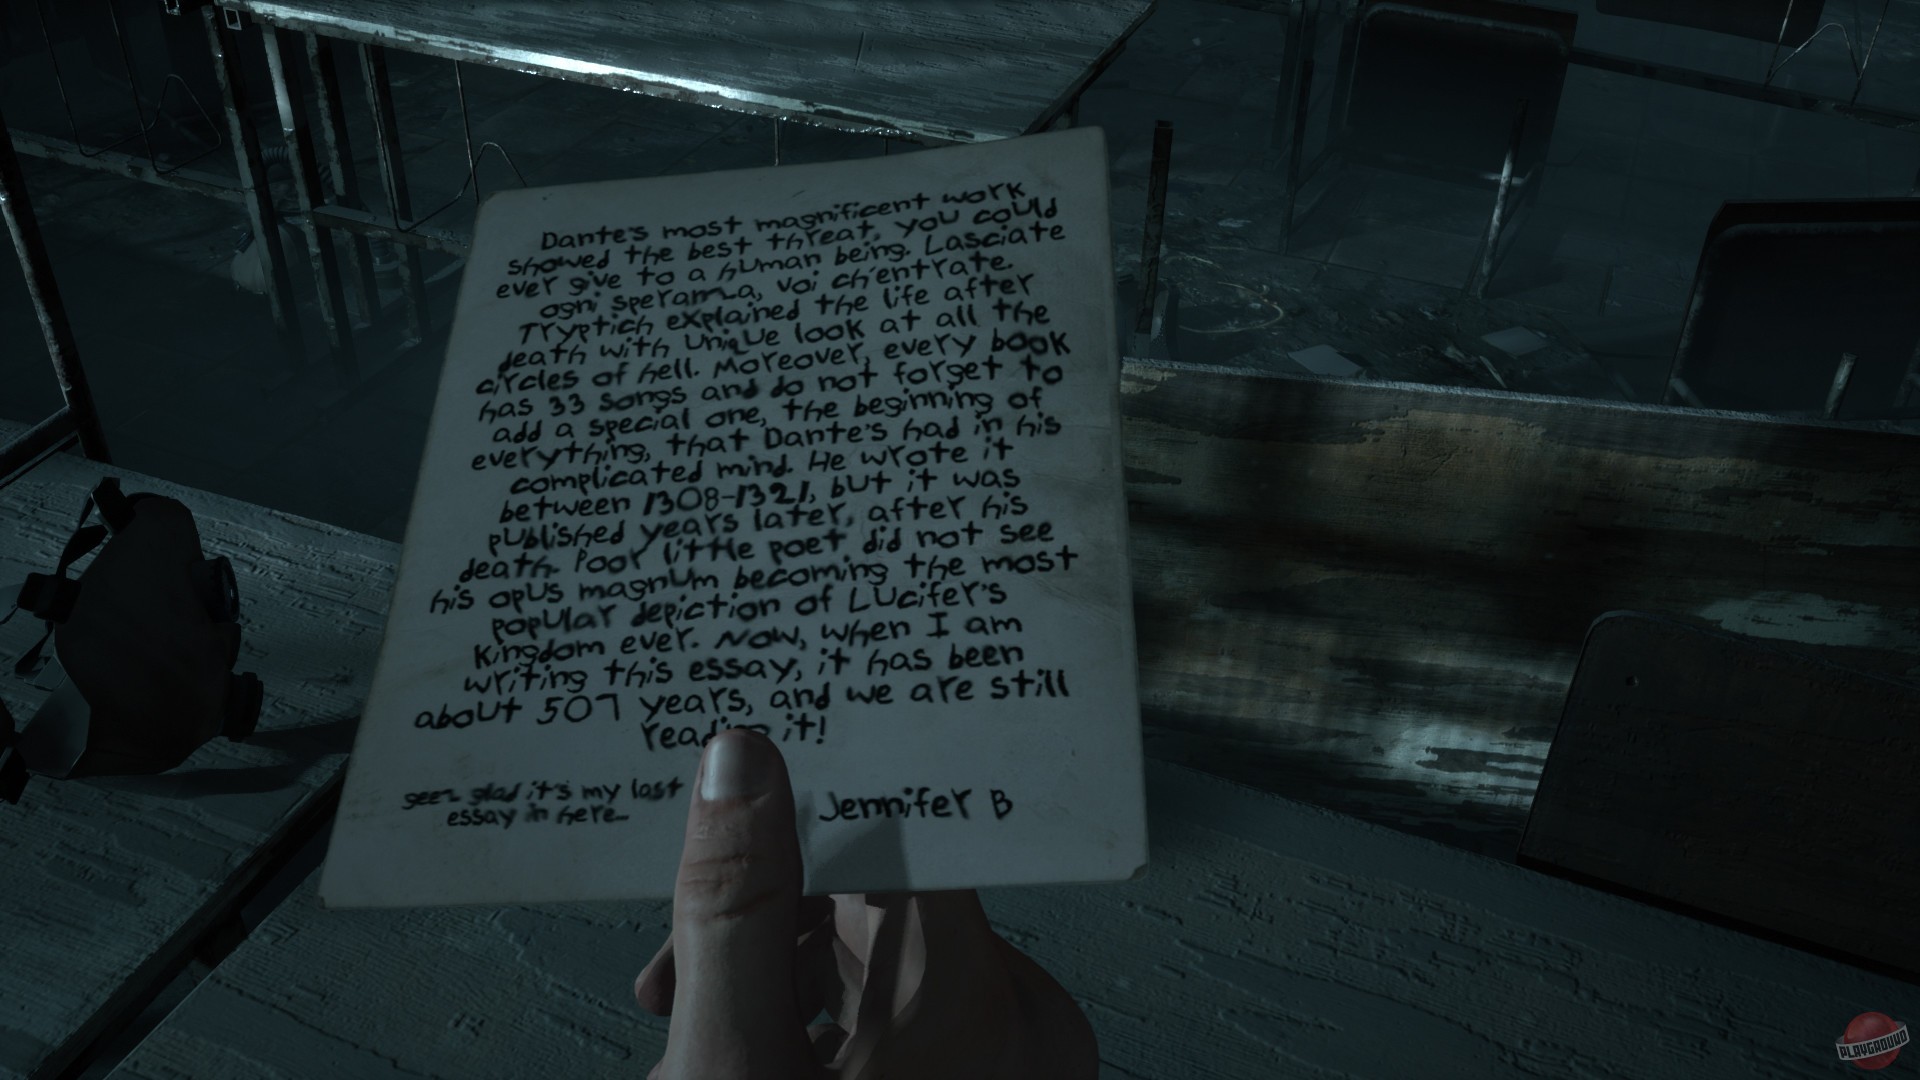 Dante's most magnificent work
showed the best threat, you could
ever give to a human being. Lasciate
ogni speranza, voi ch'entrate.
Tryptich explained the life after
death with unique look at all the
circles of hell. Moreover, every book
has 33 songs and do not forget to
add a special one, the beginning of
everything, that Dante's had in his
complicated mind. He wrote it
between 1308-1321, but it was
published years later, after his
death. Poor little poet did not see
his opus magnum becoming the most
popular depiction of Lucifer's
kingdom ever. Now, when I am
writing this essay, it has been
about 507 years, and we are still
reading it!
geez glad it's my last
essay in here...
Jennifer B
PLAYGROUND